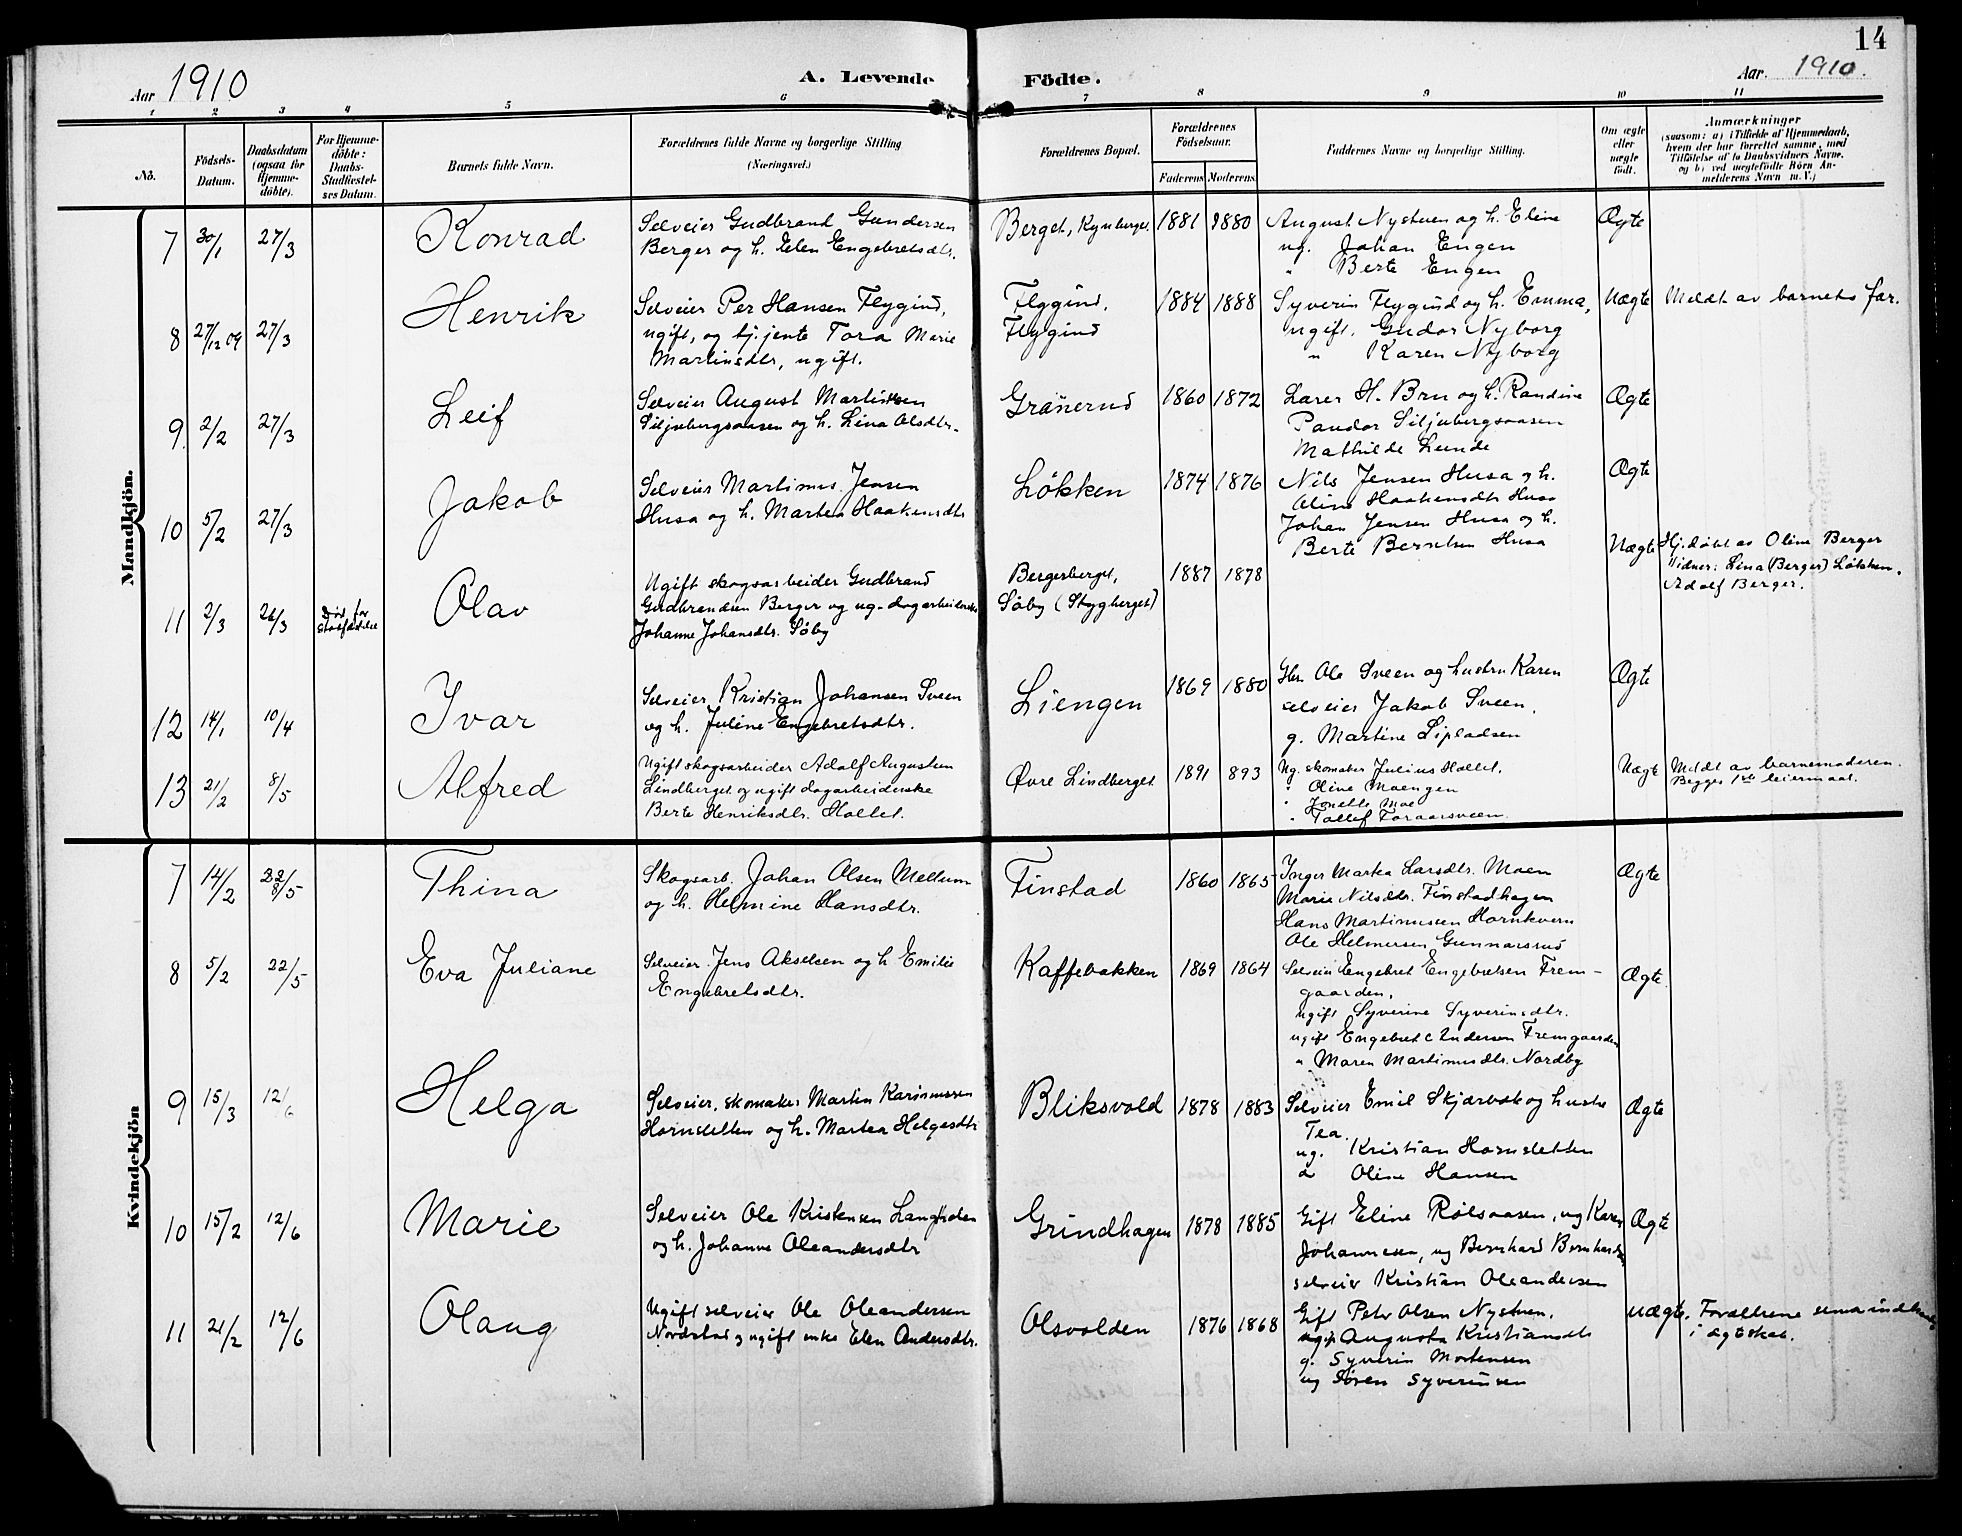 14
Aar 1910
A. Levende Födte.
Aar. 1910.
1 2 3 4 5 6 7 8 9 10 11
No.
Födsels-Datum.
Daabsdatum (ogsaa for Hjemme-döbte).
For Hjemme-döbte: Daabs-Stadfæstel-ses Datum.
Barnets fulde Navn.
Forældrenes fulde Navne og borgerlige Stilling (Næringsvei.)
Forældrenes Bopæl.
Forældrenes Födselsaar.
Faderens Moderens
Faddernes Navne og borgerlige Stilling.
Om ægte eller uægte födt.
Anmærkninger
(saasom: a) i Tilfælde af Hjemmedaab, hvem der har forrettet samme, med Tilföielse af to Daabsvidners Navne, og b) ved uægtefödte Börn An-melderens Navn m. V.)
Mandkjön.
7 30/1 27/3 Konrad
Selveier Gudbrand Gundersen
Berger og h. Elen Engebretsdtr.
Berget, Kynberget 1881 1880
August Nystuen og h. Eline
ug. Johan Engen
" Berte Engen
Ægte
8 27/12 09 27/3 Henrik
Selveier Per Hansen Flygind,
ugift, og tj.jente Tora Marie
Martinsdtr, ugift.
Flygind,
Flygind
1884 1888
Syverin Flygind og h. Emma,
ugift. Gudor Nyborg
" Karen Nyborg
Uægte
Meldt av barnets far.
9. 2/2 27/3 Leif
Selveier August Martinsen
Siljubergsaasen og h. Lina Olsdtr.
Gränerud 1860 1872
Lærer H. Bru og h. Randine
Paudor Siljubergsaasen
Mathilde Lunde
Ægte
10 5/2 27/3 Jakob
Selveier Martinus Jensen
Husa og h. Martea Haakensdtr
Løkken 1874 1876
Nils Jensen Husa og h.
Oline Haakensdtr Husa
Johan Jensen Husa og h.
Berte Berntsen Husa
Ægte
11 2/3 26/3
Død før stadfæstelse
Olav
Ugift skogsarbeider Gudbrand
Gudbrandsen Berger og ug. dagarbeiderske
Johanne Johansdtr. Søby
Bergerberget,
Søby (Stygberget)
1887 1878
Uægte
Hj.døbt av Oline Berger
Vidner: Lina (Berger) Løkken,
Adolf Berger.
12 14/1 10/4 Ivar
Selveier Kristian Johansen Sveen
og h. Juline Engebretsdtr.
Liengen 1869 1880
Ole Sveen og hustru Karen
selveier Jakob Sveen,
g. Martine Sipladsen
Ægte
13 21/2 8/5 Alfred
Ugift skogsarbeider Adolf Augustsen
Lindberget og ugift dagarbeiderske
Berte Henriksdtr. Holtet.
Øvre Lindberget 1891 893
Ug. skomaker Julius Holtet.
" Oline Moengen
" Jonette Moe
" Tollef Foraarsveen.
Uægte
Meldt av barnemoderen.
Begges 1ste leiermaal.
Kvindekjön
7 14/2 22/5 Thina
Skogsarb. Johan Olsen Mellum
og h. Helmine Hansdtr.
Finstad 1860 1865
Inger Marka Larsdtr. Moen
Marie Nilsdtr. Finstadhagen
Hans Martinussen Hornkvern
Ole Helmersen Gunnarsrud
Ægte
8 5/2 22/5 Eva Juliane
Selveier. Jens Akselsen og h. Emilie
Engebretsdtr.
Kaffebakken 1869 1864
Selveier Engebret Engebretsen Frem-
gaarden,
ugift Syverine Syverinsdtr.
ugift Engebret Andersen Fremgaarden
" Maren Martinusdtr. Nordby
Ægte
9 15/3 12/6 Helga
Selveier, skomaker Martin Karinussen
Hornsletten og h. Martea Helgesdtr
Bliksvold 1878 1883
Selveier Emil Skjærbæk og hustr
Tea.
ug. Kristian Hornsletten
" Oline Hansen
Ægte
10 15/2 12/6 Marie
Selveier Ole Kristensen Langholen
og h. Johanne Oleandersdtr
Grindhagen 1878 1885
Gift Eline Rølsaasen, ug Karen
Johannesen, ug Bernhard Bernhardsen
selveier Kristian Oleandersen
Ægte
11 21/2 12/6 Olaug
Ugift selveier Ole Oleandersen
Nordstad og ugift enke Elen Andersdtr.
Olsvolden 1876 1868
Gift Petr Olsen Nystuen.
ugift Augusta Kristiansdtr
g. Syverin Mortensen
ug Søren Syverinsen
uægte.
Forældrene
i ægteskab.